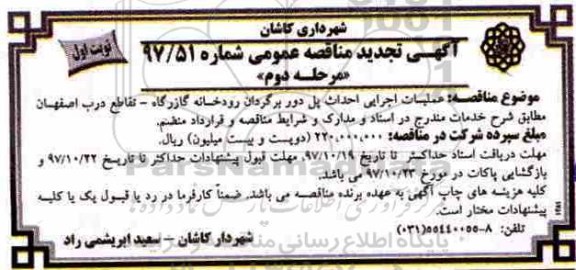 شهرداری کاشان
آگهی تجدید مناقصه عمومی شماره ۹۷/۵۱
«مرحله دوم»
نوبت اول
موضوع مناقصه: عملیات اجرایی احداث پل دور برگردان رودخانه گازرگاه - تقاطع درب اصفهان
مطابق شرح خدمات مندرج در اسناد و مدارک و شرایط مناقصه و قرارداد منضم.
مبلغ سپرده شرکت در مناقصه: ۲۲۰.۰۰۰.۰۰۰ (دویست و بیست میلیون) ریال.
مهلت دریافت اسناد حداکثر تا تاریخ ۹۷/۱۰/۱۹، مهلت قبول پیشنهادات حداکثر تا تاریخ ۹۷/۱۰/۲۲ و
بازگشایی پاکات در مورخ ۹۷/۱۰/۲۳ می باشد.
کلیه هزینه های چاپ آگهی به عهده برنده مناقصه می باشد. ضمناً کارفرما در رد یا قبول یک یا کلیه
پیشنهادات مختار است.
تلفن: ۸-۵۵۴۴۰۰۵۵(۰۳۱)
شهردار کاشان - سعید ابریشمی راد